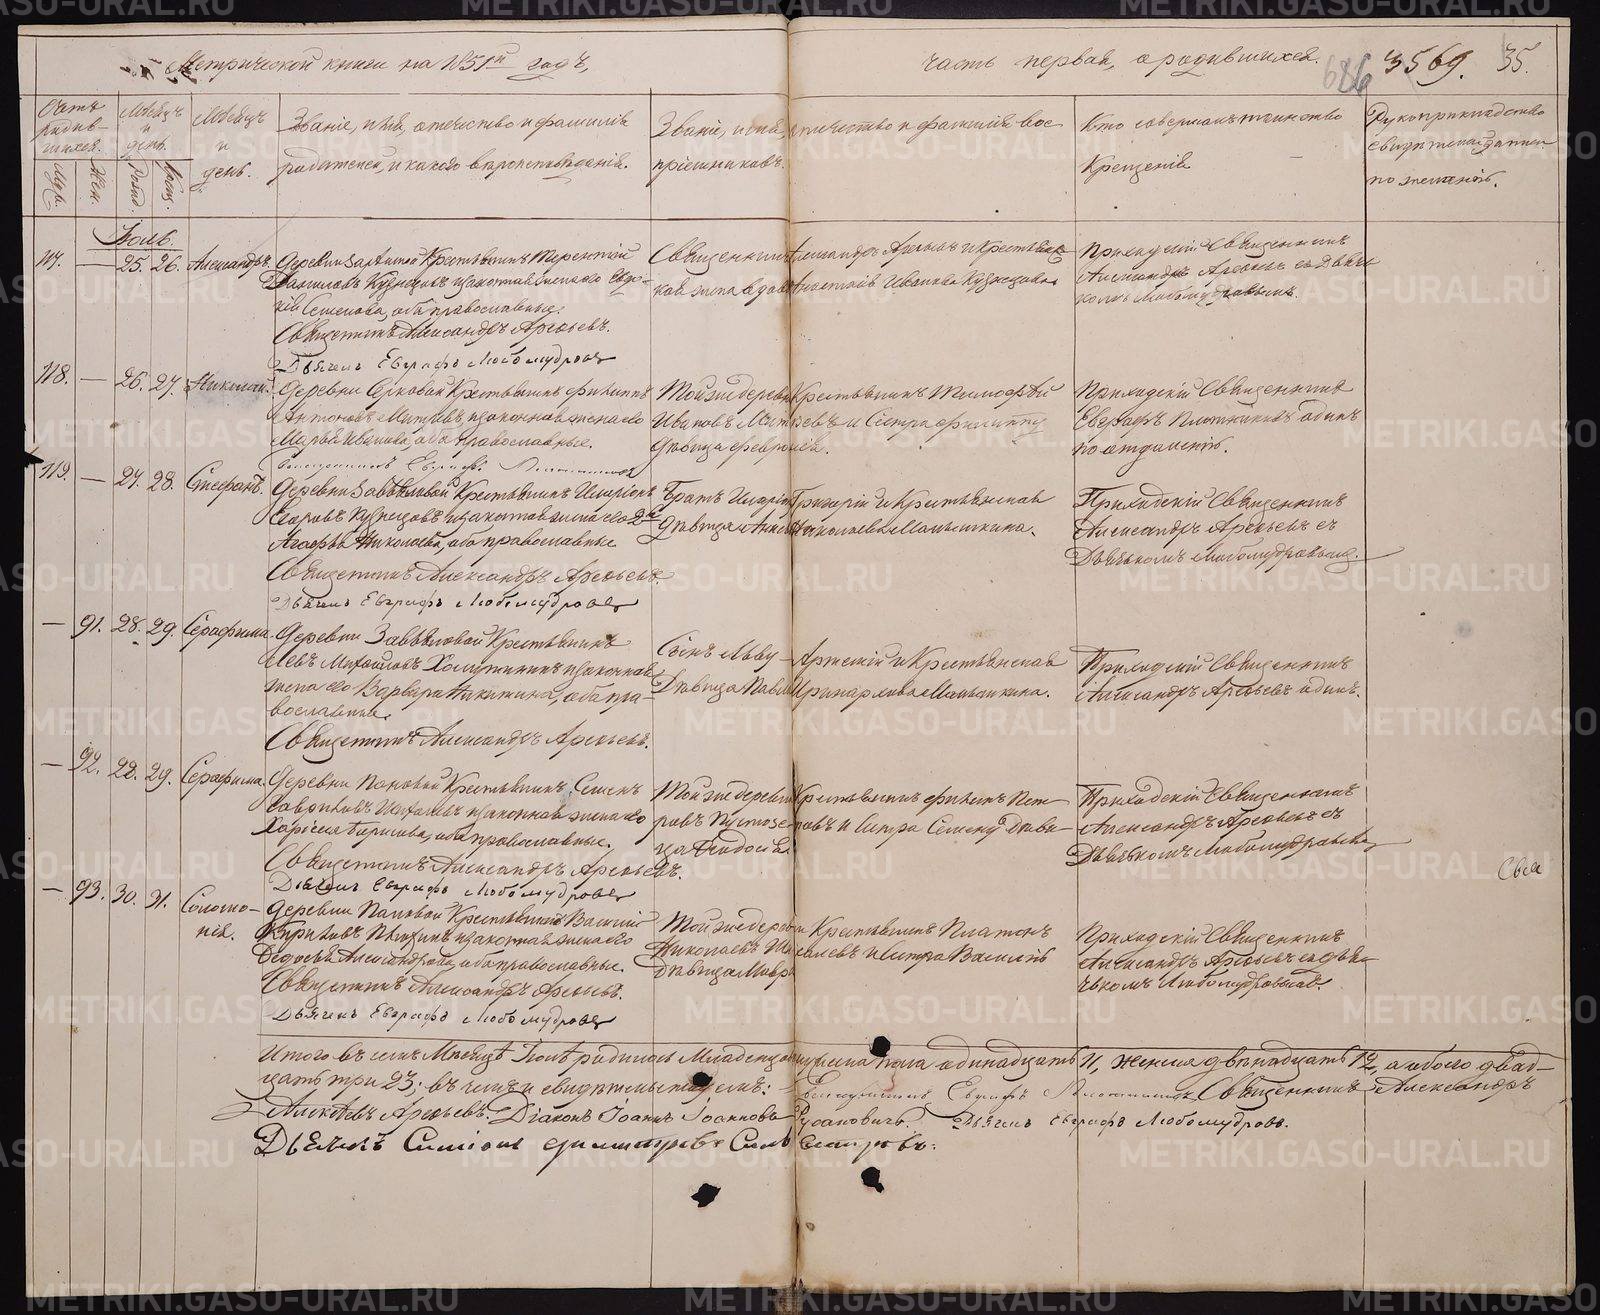 Метрической книги на 1851й годъ,
часть первая, о родившихся.
686 3569. 35.
Счетъ родив-шихся.
Муж. Жен.
Мѣсяцъ и день.
Рожд. Крещ.
Мѣсяцъ и день.
Званіе, имя, отчество и фамилія
родителей, и какого вѣроисповѣданія.
Званіе, имя, отчество и фамилія вос-
пріемниковъ.
Кто совершалъ таинство
Крещенія
Рукоприкладство
свидѣтелей записи
по желанію.
Іюль.
117. — 25. 26. Александръ.
Крестьянинъ Терентій
Даниловъ Кузнецовъ и законная жена его Евдо-
кія Семенова, оба православные.
Священникъ Александръ Арефьевъ.
Дьячекъ Евграфъ Любомудровъ
Священникъ Александръ Арефьевъ и Крестьянс-
кая жена вдова Анастасія Иванова Кузнецова
Приходскій Священникъ
Александръ Арефьевъ съ Дьяч-
комъ Любомудровымъ.
118. — 26. 27. Николай.
Деревни Серковой Крестьянинъ Филиппъ
Антоновъ и законная жена его
Марья Иванова, оба православные.
Священникъ Евграфъ Плотниковъ
Той же деревни Крестьянинъ Тимофей
Ивановъ и Сестра Филиппу
дѣвица Февронія.
Приходскій Священникъ
Евграфъ Плотниковъ одинъ
по отдаленію.
119. — 27. 28. Стефанъ.
Деревни Завьяловой Крестьянинъ Иларіонъ
Егоровъ Кузнецовъ и законная жена его 2я
Агафья Николаева, оба православные
Священникъ Александръ Арефьевъ.
Дьячекъ Евграфъ Любомудровъ
Братъ Григорій и Крестьянская
дѣвица Анна Николаева Манышкина.
Приходскій Священникъ
Александръ Арефьевъ съ
Дьячькомъ Любомудровымъ.
— 91. 28. 29. Серафима.
Деревни Завьяловой Крестьянинъ
Левъ Михайловъ и законная
жена его Варвара Никитина, оба пра-
вославные.
Священникъ Александръ Арефьевъ.
Сынъ Льву Артемій и Крестьянская
Дѣвица Иринархова Манышкина.
Приходскій Священникъ
Александръ Арефьевъ одинъ.
— 92. 28. 29. Серафима.
Деревни Пановой Крестьянинъ Семенъ
и законная жена его
Борисова, оба православные.
Священникъ Александръ Арефьевъ.
Дьячекъ Евграфъ Любомудровъ
Той же деревни Крестьянинъ Филипъ Пет-
ровъ и Сестра Семену Дѣви-
ца Ѳеодосія.
Приходскій Священникъ
Александръ Арефьевъ съ
Дьячькомъ Любомудровымъ
— 93. 30. 31. Соломо-
нія.
Деревни Пановой Крестьянинъ Василій
и законная жена его
Ѳедосья Александрова, оба православные.
Священникъ Александръ Арефьевъ.
Дьячекъ Евграфъ Любомудровъ
Той же деревни Крестьянинъ Платонъ
Николаевъ и Сестра Василію
Дѣвица Мавра
Приходскій Священникъ
Александръ Арефьевъ съ дья-
чькомъ Любомудровымъ.
Итого въ семъ Мѣсяцѣ Іюлѣ родилось Младенцовъ мужеска пола одинадцать 11, женска двѣнадцать 12, а обоего двад-
цать три 23; въ чемъ и свидѣтельствуемъ: Священникъ Евграфъ Плотниковъ, Священникъ Александръ
Алексѣевъ Арефьевъ. Діаконъ Іоаннъ Іоанновъ Дьячекъ Евграфъ Любомудровъ.
Дьячекъ Симеонъ